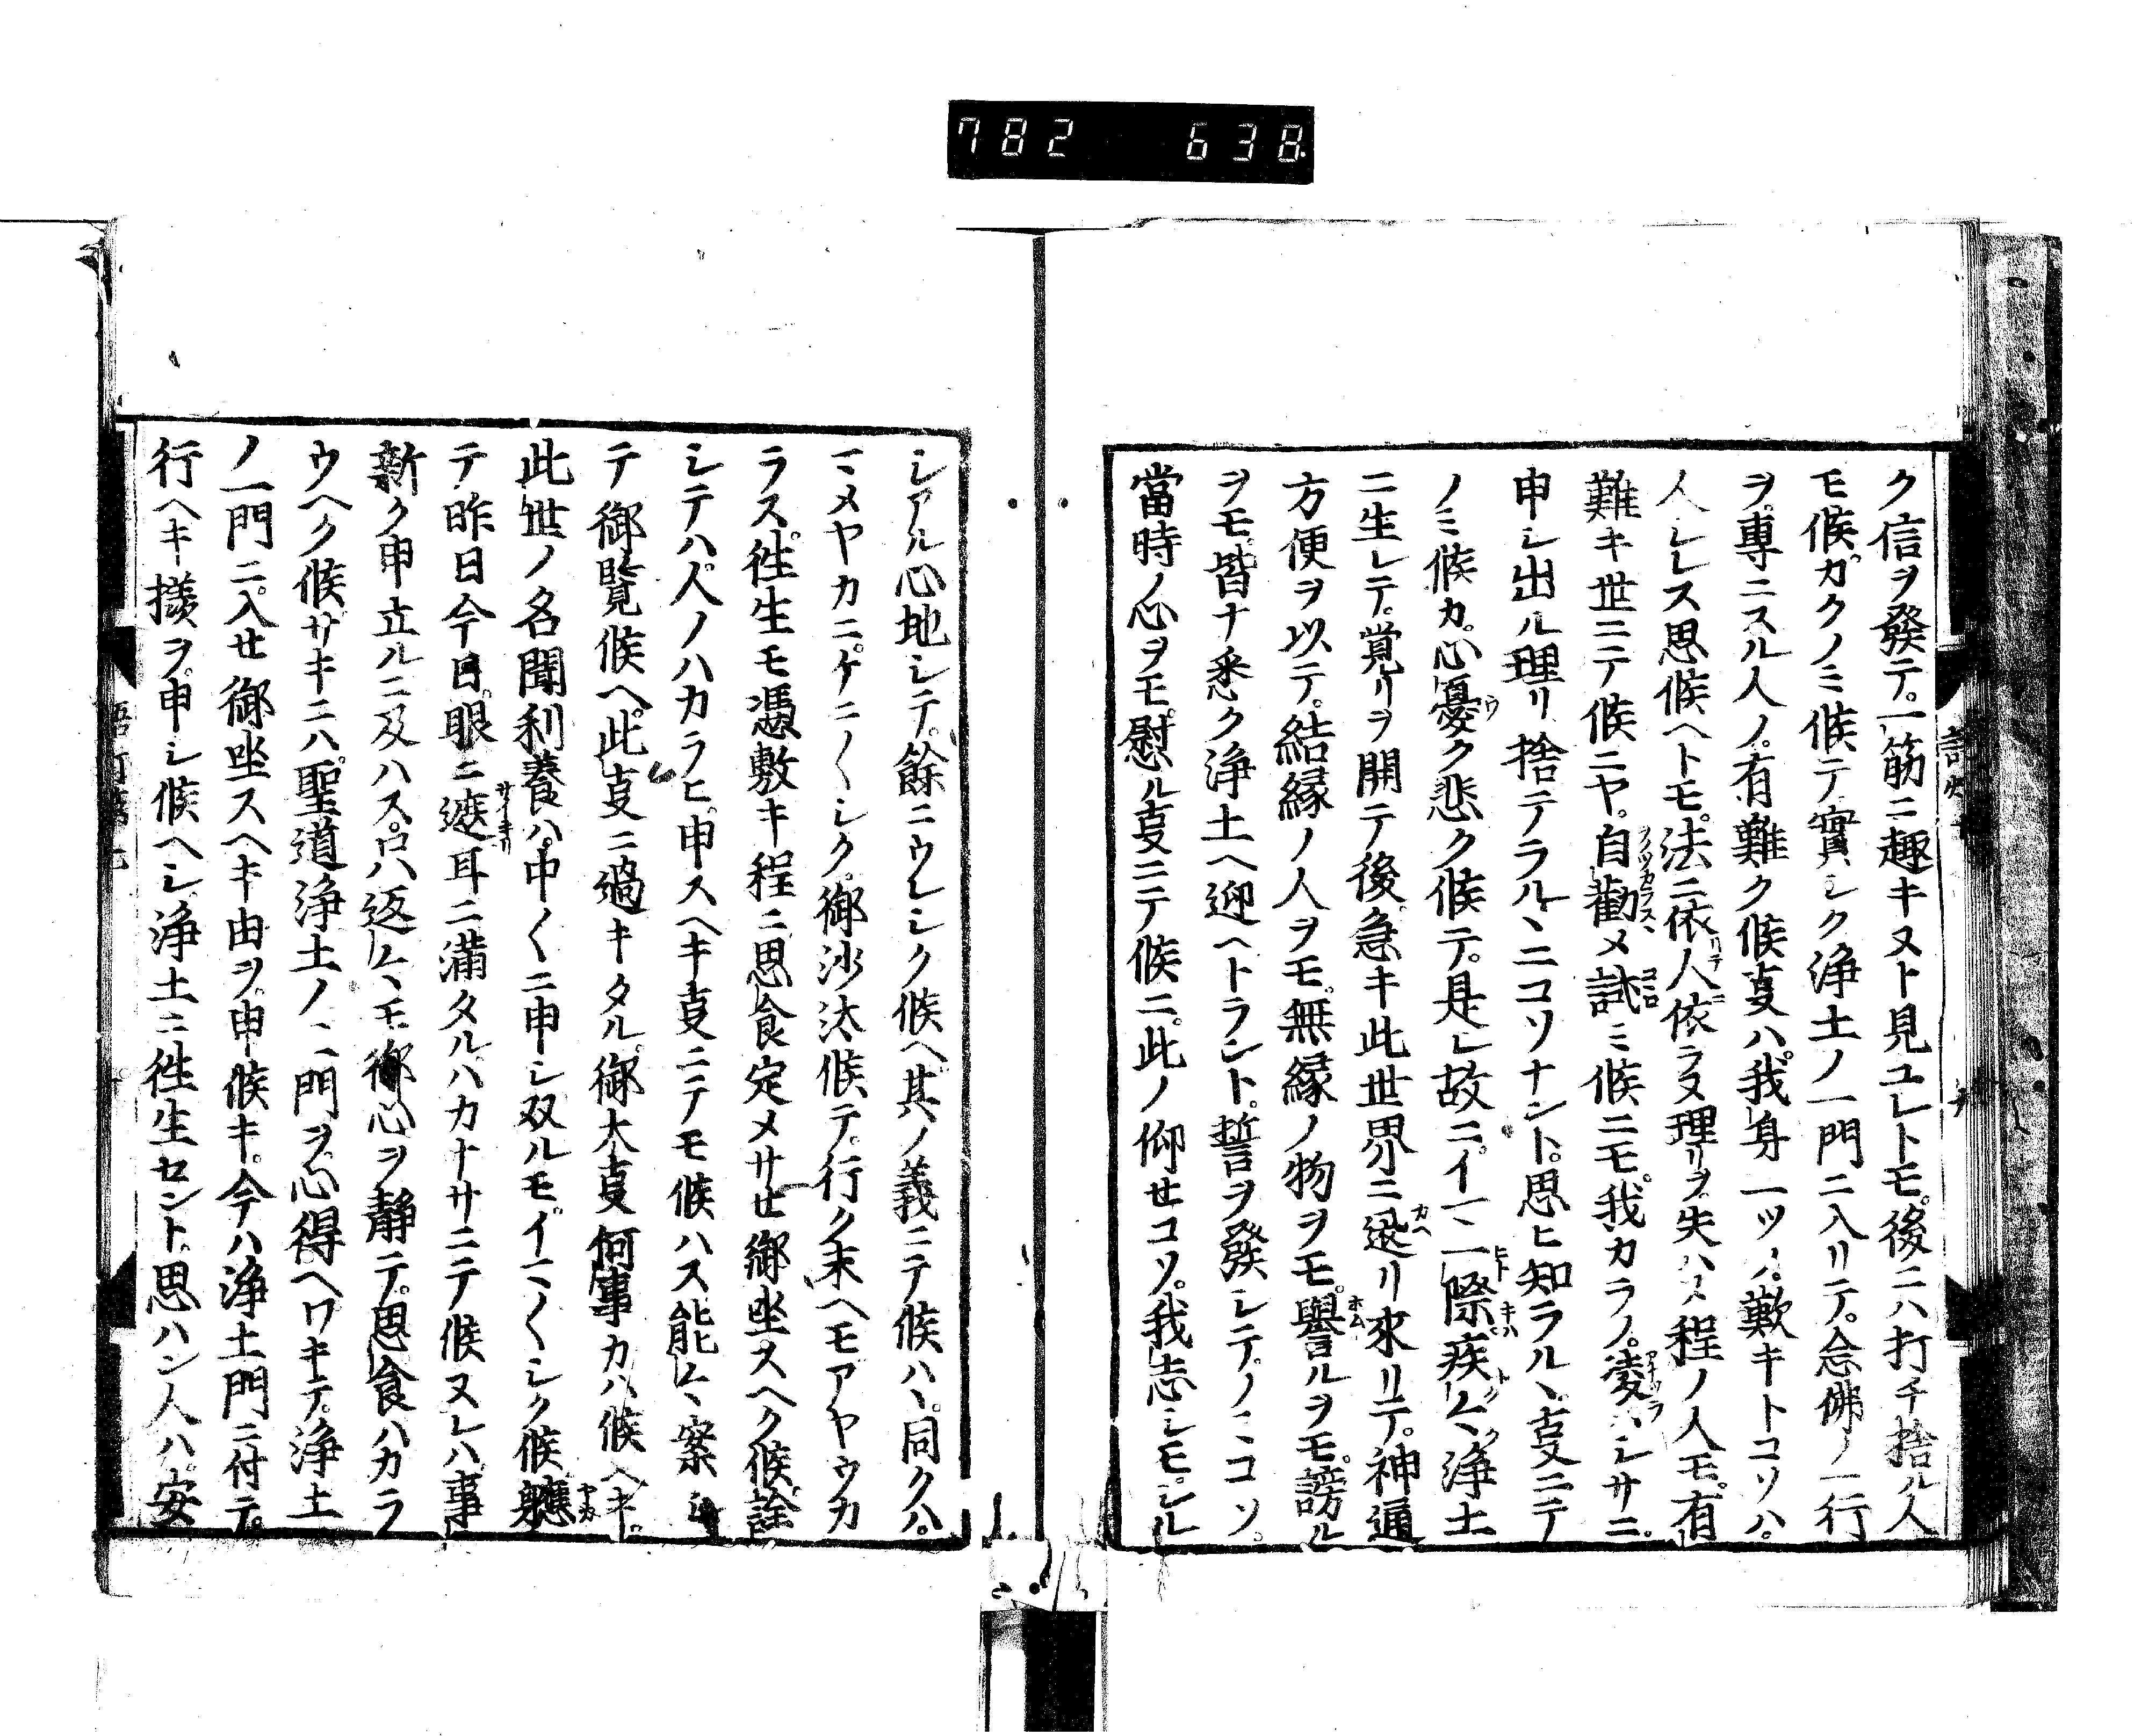 782 638
ク信ヲ發テ。一筋ニ趣キヌト見ユレトモ。後ニハ打チ捨ル人
モ候。カクノミ候テ實シク浄土ノ一門ニ入リテ。念佛ノ一行
ヲ。專ニスル人ノ。有難ク候叓ハ。我身一ツノ。歎キトコソハ。
人シレス思候ヘトモ。法ニ依リテ人ニ依ラヌ理リヲ。失ハヌ程ノ人モ。有
難キ世ニテ候ニヤ。自勸メ試ミ候ニモ。我カラノ。淩ハシサニ。
申シ出ル理リ捨テラルヽニコソナント。思ヒ知ラルヽ。叓ニテ
ノミ候カ。心憂ク悲ク候テ。是レ故ニ。イマ一際疾ク〱浄土
ニ生レテ。覚リヲ開テ後。急キ此世界ニ還リ來リテ。神通
方便ヲ以テ。結縁ノ人ヲモ。無縁ノ物ヲモ。譽ルヲモ。謗ル
ヲモ。皆ナ悉ク浄土ヘ迎ヘトラント。誓ヲ發シテノミコソ。
當時ノ心ヲモ。慰ル叓ニテ候ニ。此ノ仰セコソ。我志シモ。シル
シアル心地シテ。餘ニウレシク候ヘ。其ノ義ニテ候ハヽ。同クハ。
マメヤカニ。ケニ〱シク。御沙汰候テ。行ク末ヘモアヤウカ
ラス。徃生モ憑敷キ程ニ思食定メサセ御坐スヘク候。詮
シテハ。人ノハカラヒ。申スヘキ叓ニテモ候ハス能ク〱案シ
テ御覧候ヘ。此叓ニ過キタル。御大叓何事カハ候ヘキ。
此世ノ名聞利養ハ。中〱ニ申シ双ルモ。イマ〱シク候。軈
テ昨日今日。眼ニ遮耳ニ滿タルハカナサニテ候ヌレハ。事
新ク申立ルニ及ハス。只ハ返ス〱モ御心ヲ靜テ。思食ハカラ
ウヘク候。サキニハ。聖道浄土ノ二門ヲ。心得ヘワキテ。浄土
ノ一門ニ。入セ御坐スヘキ由ヲ。申候キ。今ハ浄土門ニ付テ。
行ヘキ樣ヲ。申シ候ヘシ。浄土ニ徃生セント。思ハン人ハ。安